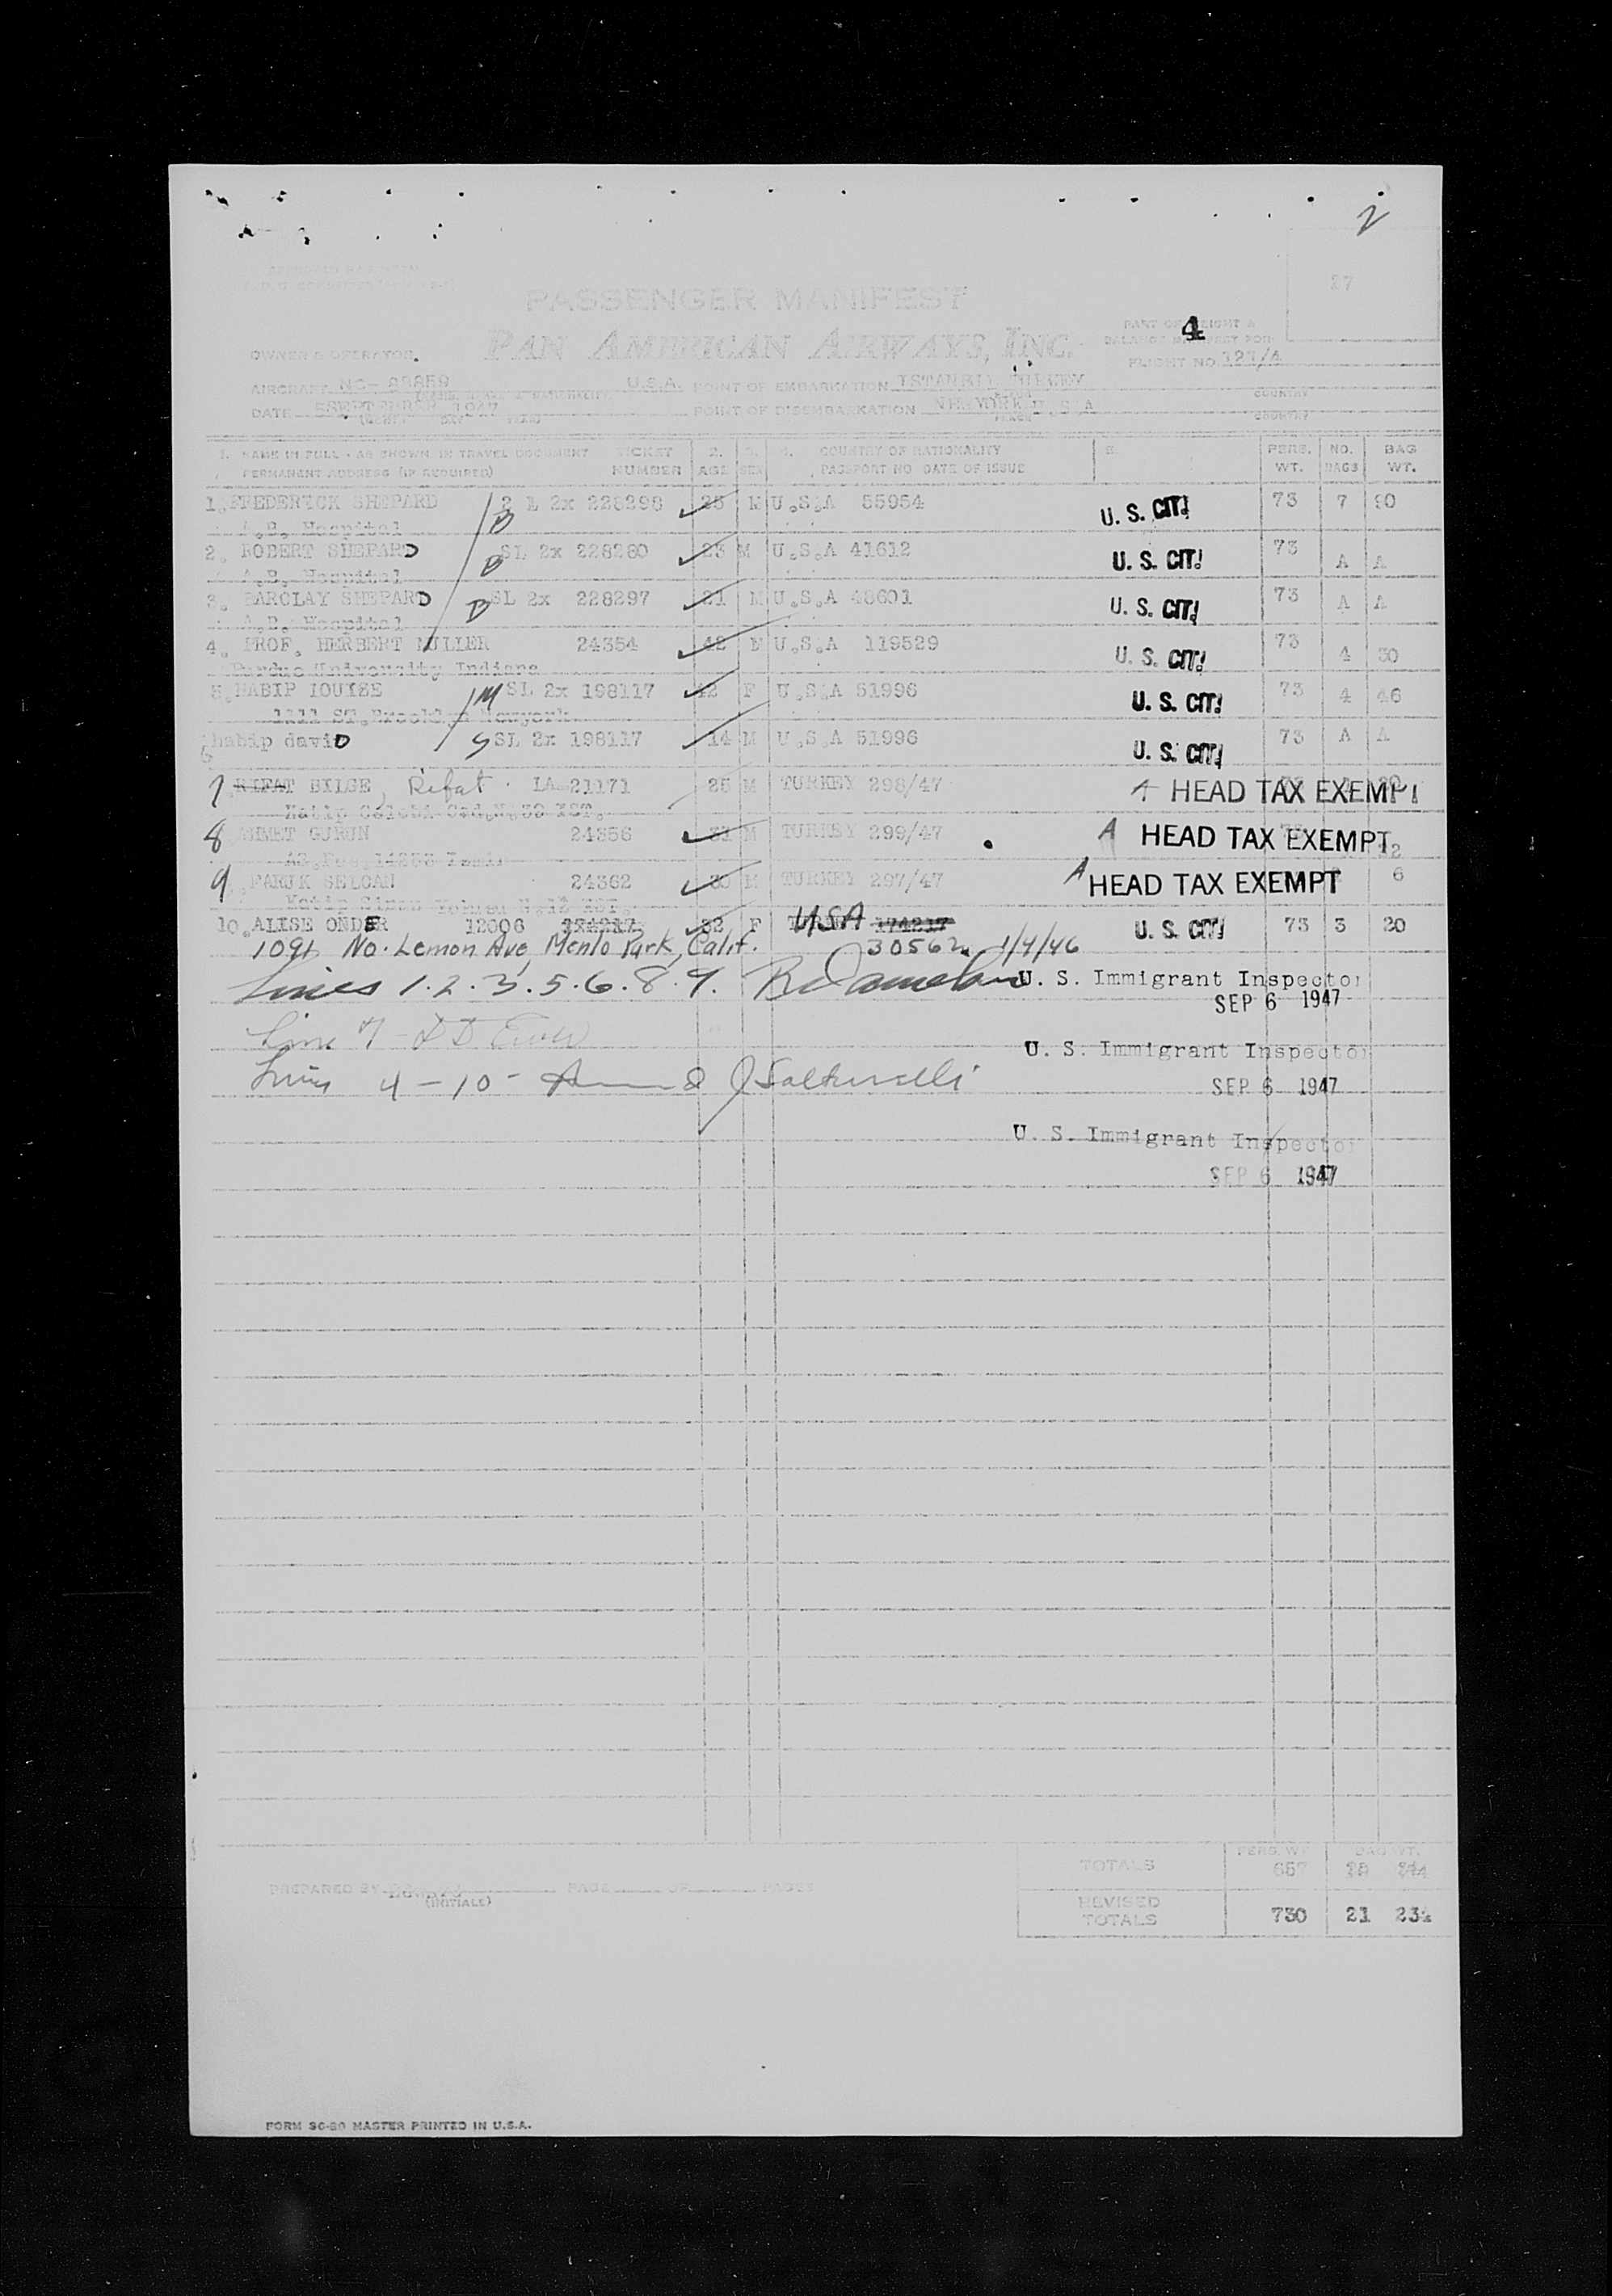 2
27
PASSENGER MANIFEST
4
PAN AMERICAN AIRWAYS, INC.
OWNER & OPERATOR.
FLIGHT NO. 121/A
AIRCRAFT NC- 88859 U.S.A. POINT OF EMBARKATION ISTANBUL TURKEY COUNTRY
DATE 5SEPTEMBER 1947 POINT OF DISEMBARKATION NEWYORK U.S.A COUNTRY
1. NAME IN FULL - AS SHOWN IN TRAVEL DOCUMENT TICKET 2. 3. 4. COUNTRY OF NATIONALITY 5. PERS. NO. BAG
PERMANENT ADDRESS (IF REQUIRED) NUMBER AGE SEX PASSPORT NO DATE OF ISSUE WT. BAGS WT.
1. FREDERICK SHEPARD B 2x 228298 25 M U.S.A 55954 U. S. CIT! 73 7 90
A.B. Hospital
2. ROBERT SHEPARD B SL 2x 228280 23 M U.S.A 41612 U. S. CIT! 73 A A
A.B. Hospital
3. BARCLAY SHEPARD B SL 2x 228297 21 M U.S.A 48601 U. S. CIT! 73 A A
A.B. Hospital
4. PROF. HERBERT MULLER 24354 42 U.S.A 119529 U. S. CIT! 73 4 30
Purdue University Indiana
5. HABIP IOUIZE M SL 2x 198117 42 F U.S.A 51996 U. S. CIT! 73 4 46
1111 ST. Brooklyn Newyork
6 habip daviD S SL 2x 198117 14 M U.S.A 51996 U. S. CIT! 73 A A
7 RIFAT BILGE, Rifat. LA 21171 25 M TURKEY 298/47 A HEAD TAX EXEMPT
Katip Celebi Cad.
8 AHMET GURUN 24356 31 M TURKEY 299/47 A HEAD TAX EXEMPT 12
9 FARUK SELCAN 24362 30 M TURKEY 297/47 A HEAD TAX EXEMPT 6
Katip Sinan
10. ALISE ONDER 12606 174217 32 F USA 174217 U. S. CIT! 73 3 20
1091 No. Lemon Ave, Menlo Park, Calif. 30562 1/4/46
Lines 1.2.3.5.6.8.9. U. S. Immigrant Inspector
SEP 6 1947
Line 7 -
U. S. Immigrant Inspector
Lines 4 - 10 - SEP 6 1947
U. S. Immigrant Inspector
SEP 6 1947
PERS. WT. BAG WT.
TOTALS 657 18
PREPARED BY PAGE OF PAGES
(INITIALS)
REVISED
TOTALS 730 21 234
FORM 30-20 MASTER PRINTED IN U.S.A.